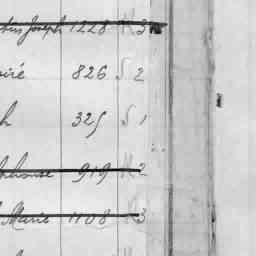 Joseph 1228 K 3
oiré 826 S 2
h 325 S 1
phonse 919 K 2
Marie 1108 K 3